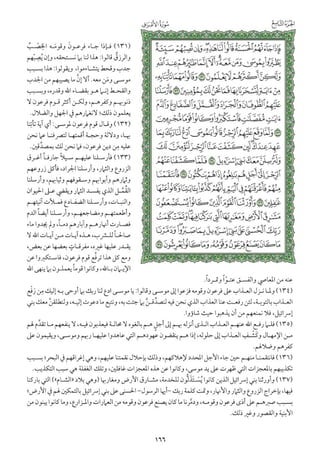 الجزء التاسع
سورة الأعراف
فَإِذَا جَاءَتْهُمُ الْحَسَنَةُ قَالُوا لَنَا هَٰذِهِ وَإِن تُصِبْهُمْ سَيِّئَةٌ
يَطَّيَّرُوا بِمُوسَىٰ وَمَن مَّعَهُ أَلَا إِنَّمَا طَائِرُهُمْ عِندَ اللَّهِ
وَلَٰكِنَّ أَكْثَرَهُمْ لَا يَعْلَمُونَ ١٣١ وَقَالُوا مَهْمَا تَأْتِنَا بِهِ مِنْ
آيَةٍ لِّتَسْحَرَنَا بِهَا فَمَا نَحْنُ لَكَ بِمُؤْمِنِينَ ١٣٢ فَأَرْسَلْنَا
عَلَيْهِمُ الطُّوفَانَ وَالْجَرَادَ وَالْقُمَّلَ وَالضَّفَادِعَ وَالدَّمَ
آيَاتٍ مُّفَصَّلَاتٍ فَاسْتَكْبَرُوا وَكَانُوا قَوْمًا مُّجْرِمِينَ ١٣٣
وَلَمَّا وَقَعَ عَلَيْهِمُ الرِّجْزُ قَالُوا يَا مُوسَى ادْعُ لَنَا رَبَّكَ بِمَا
عَهِدَ عِندَكَ لَئِن كَشَفْتَ عَنَّا الرِّجْزَ لَنُؤْمِنَنَّ لَكَ وَلَنُرْسِلَنَّ
مَعَكَ بَنِي إِسْرَائِيلَ ١٣٤ فَلَمَّا كَشَفْنَا عَنْهُمُ الرِّجْزَ إِلَىٰ أَجَلٍ
هُم بَالِغُوهُ إِذَا هُمْ يَنكُثُونَ ١٣٥ فَانتَقَمْنَا مِنْهُمْ فَأَغْرَقْنَاهُمْ
فِي الْيَمِّ بِأَنَّهُمْ كَذَّبُوا بِآيَاتِنَا وَكَانُوا عَنْهَا غَافِلِينَ ١٣٦ وَأَوْرَثْنَا
الْقَوْمَ الَّذِينَ كَانُوا يُسْتَضْعَفُونَ مَشَارِقَ الْأَرْضِ وَمَغَارِبَهَا
الَّتِي بَارَكْنَا فِيهَا وَتَمَّتْ كَلِمَتُ رَبِّكَ الْحُسْنَىٰ عَلَىٰ بَنِي إِسْرَائِيلَ
بِمَا صَبَرُوا وَدَمَّرْنَا مَا كَانَ يَصْنَعُ
فِرْعَوْنُ وَقَوْمُهُ وَمَا كَانُوا يَعْرِشُونَ ١٣٧
(١٣١) فإذا جاء فرعون وقومه الخِصْبُ
والرزق قالوا: هذا لنا بما نستحقه، وإن يُصِبْهم
جدب وقحط يتشاءموا، ويقولوا: هذا بسبب
موسى ومن معه. ألا إنّ ما يصيبهم من الجدب
والقحط إنما هو بقضاء الله وقدره، وبسبب
ذنوبهم وكفرهم، ولكن أكثر قوم فرعون لا
يعلمون ذلك؛ لانغمارهم في الجهل والضلال.
(١٣٢) وقال قوم فرعون لموسى: أي آية تأتنا
بها، ودلالة وحجة أقمتها لتصرفنا عما نحن
عليه من دين فرعون، فما نحن لك بمصدِّقين.
(١٣٣) فأرسلنا عليهم سيلاً جارفاً أغرق
الزروع والثمار، وأرسلنا الجراد، فأكل زروعهم
وثمارهم وأبوابهم وسقوفهم وثيابهم، وأرسلنا
القُمَّل الذي يفسد الثمار ويقضي على الحيوان
والنبات، وأرسلنا الضفادع فملأت آنيتهم
وأطعمتهم ومضاجعهم، وأرسلنا أيضاً الدم
فصارت أنهارهم وآبارهم دماً، ولم يجدوا ماء
صالحاً للشرب، هذه آيات من آيات الله لا
يقدر عليها غيره، مفرقات بعضها عن بعض،
ومع كل هذا ترفَّع قوم فرعون، فاستكبروا عن
الإيمان بالله، وكانوا قوماً يعملون بما ينهى الله
عنه من المعاصي والفسق عتوّاً وتمرداً.
(١٣٤) ولما نزل العذاب على فرعون وقومه فزعوا إلى موسى وقالوا: يا موسى ادع لنا ربك بما أوحى به إليك مِن رَفْعِ
العذاب بالتوبة، لئن رفعت عنا العذاب الذي نحن فيه لنصدِّقنَّ بما جئت به، ونتبع ما دعوت إليه، ولنطلقنَّ معك بني
إسرائيل، فلا نمنعهم من أن يذهبوا حيث شاؤوا.
(١٣٥) فلما رفع الله عنهم العذاب الذي أنزله بهم إلى أجل هم بالغوه لا محالة فيعذبون فيه، لا ينفعهم ما تقدَّم لهم
من الإمهال وكَشْفِ العذاب إلى حلوله، إذا هم ينقضون عهودهم التي عاهدوا عليها ربهم وموسى، ويقيمون على
كفرهم وضلالهم.
(١٣٦) فانتقمنا منهم حين جاء الأجل المحدد لإهلاكهم، وذلك بإحلال نقمتنا عليهم، وهي إغراقهم في البحر؛ بسبب
تكذيبهم بالمعجزات التي ظهرت على يد موسى، وكانوا عن هذه المعجزات غافلين، وتلك الغفلة هي سبب التكذيب.
(١٣٧) وأورثنا بني إسرائيل الذين كانوا يُسْتَذَلُّون للخدمة، مشارق الأرض ومغاربها (وهي بلاد «الشام») التي باركنا
فيها، بإخراج الزروع والثمار والأنهار، وتمت كلمة ربك -أيها الرسول- الحسنى على بني إسرائيل بالتمكين لهم في الأرض؛
بسبب صبرهم على أذى فرعون وقومه، ودمَّرنا ما كان يصنع فرعون وقومه من العمارات والمزارع، وما كانوا يبنون من
الأبنية والقصور وغير ذلك.
١٦٦